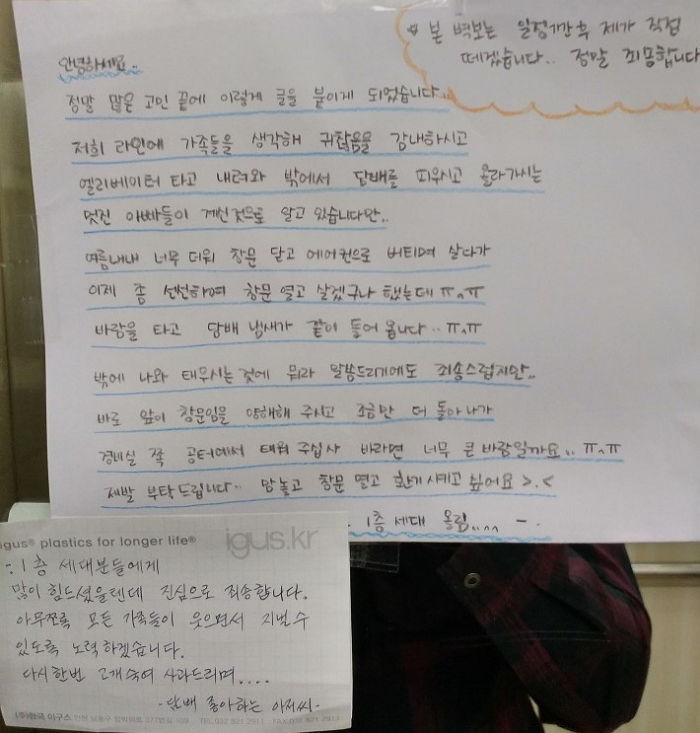 * 본 벽보는 일정기간 후 제가 직접
떼겠습니다.. 정말 죄송합니다
안녕하세요..
정말 많은 고민 끝에 이렇게 글을 붙이게 되었습니다..
저희 라인에 가족들을 생각해 귀찮음을 감내하시고
엘리베이터 타고 내려와 밖에서 담배를 피우시고 올라가시는
멋진 아빠들이 계신것으로 알고 있습니다만..
여름내내 너무 더워 창문 닫고 에어컨으로 버티며 살다가
이제 좀 선선하여 창문 열고 살겠구나 했는데 ㅠ^ㅠ
바람을 타고 담배 냄새가 같이 들어 옵니다..ㅠ^ㅠ
밖에 나와 태우시는 것에 뭐라 말씀드리기에도 죄송스럽지만..
바로 앞이 창문임을 양해해 주시고 조금만 더 돌아나가
경비실 쪽 공터에서 태워 주십사 바라면 너무 큰 바람일까요.. ㅠ^ㅠ
제발 부탁드립니다.. 맘놓고 창문 열고 환기시키고 싶어요 >.<
- 1층 세대 올림.... -
igus® plastics for longer life® igus.kr
-: 1층 세대분들에게
많이 힘드셨을텐데 진심으로 죄송합니다.
아무쪼록 모든 가족들이 웃으면서 지낼 수
있도록 노력하겠습니다.
다시한번 고개숙여 사과드리며....
-담배 좋아하는 아저씨-
(주)한국 이구스 인천 남동구 TEL.032 821 2911 FAX.032 821 2913